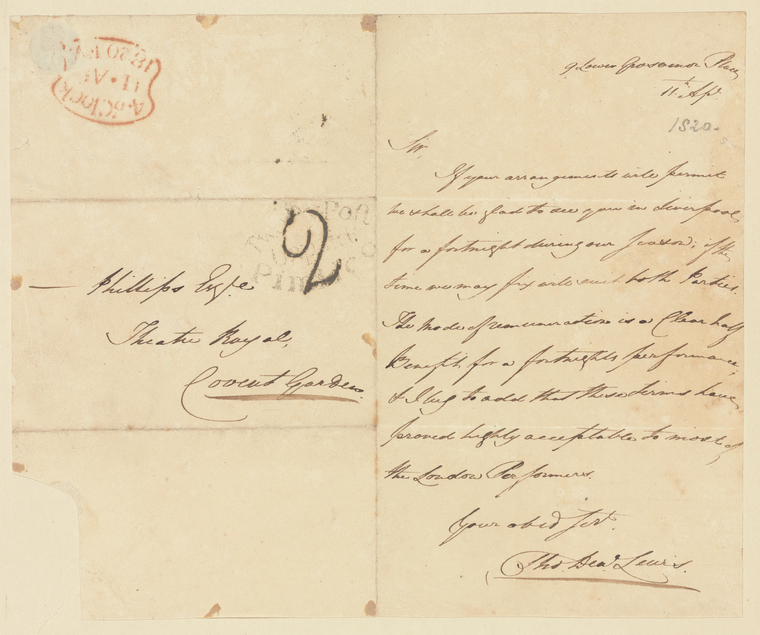 4 o'Clock
11 . AP
1820 EV
Py Post
Pimlico
2
— Phillips Esqre
Theatre Royal,
Covent Garden.
9 Lower Grosvenor Place
11th Apl
1820.
Sir,
If your arrangements will permit
we shall be glad to see you in Liverpool
for a fortnight during our Season; if the
time we may fix will suit both Parties.
The Mode of remuneration is a Clear half
Benefit for a fortnights performance,
& I beg to add that these terms have
proved highly acceptable to most of
the London Performers.
Your obed Sert.
Tho. Dead. Lewis.